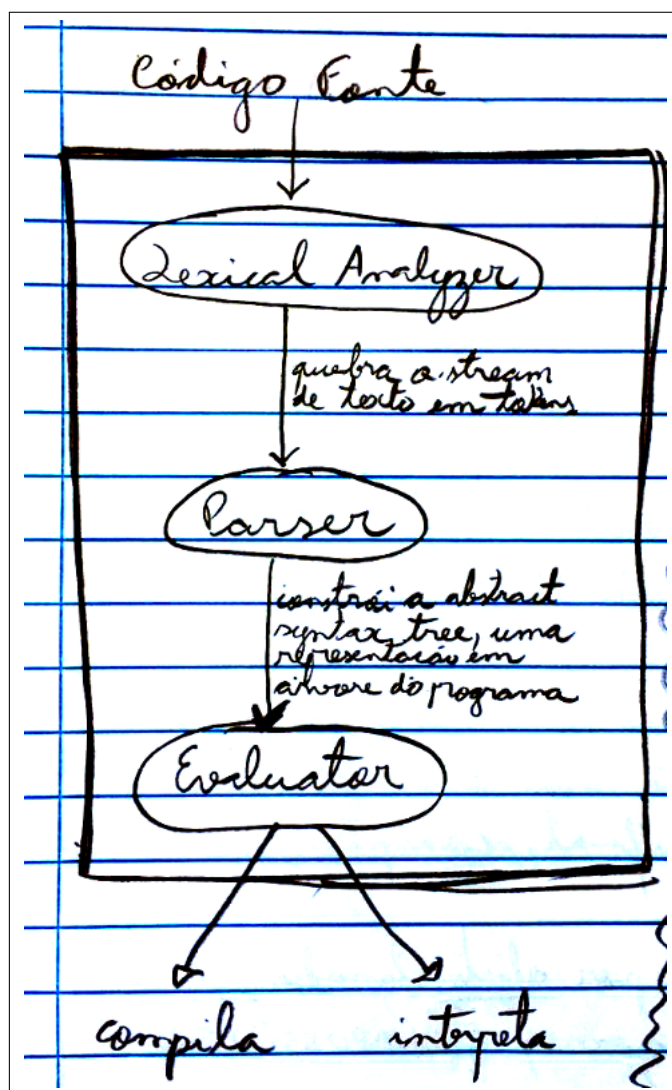 Código Fonte
Lexical Analyzer
quebra o stream
de texto em tokens
Parser
constrói a abstract
syntax tree, uma
representação em
árvore do programa
Evaluator
compila
interpreta